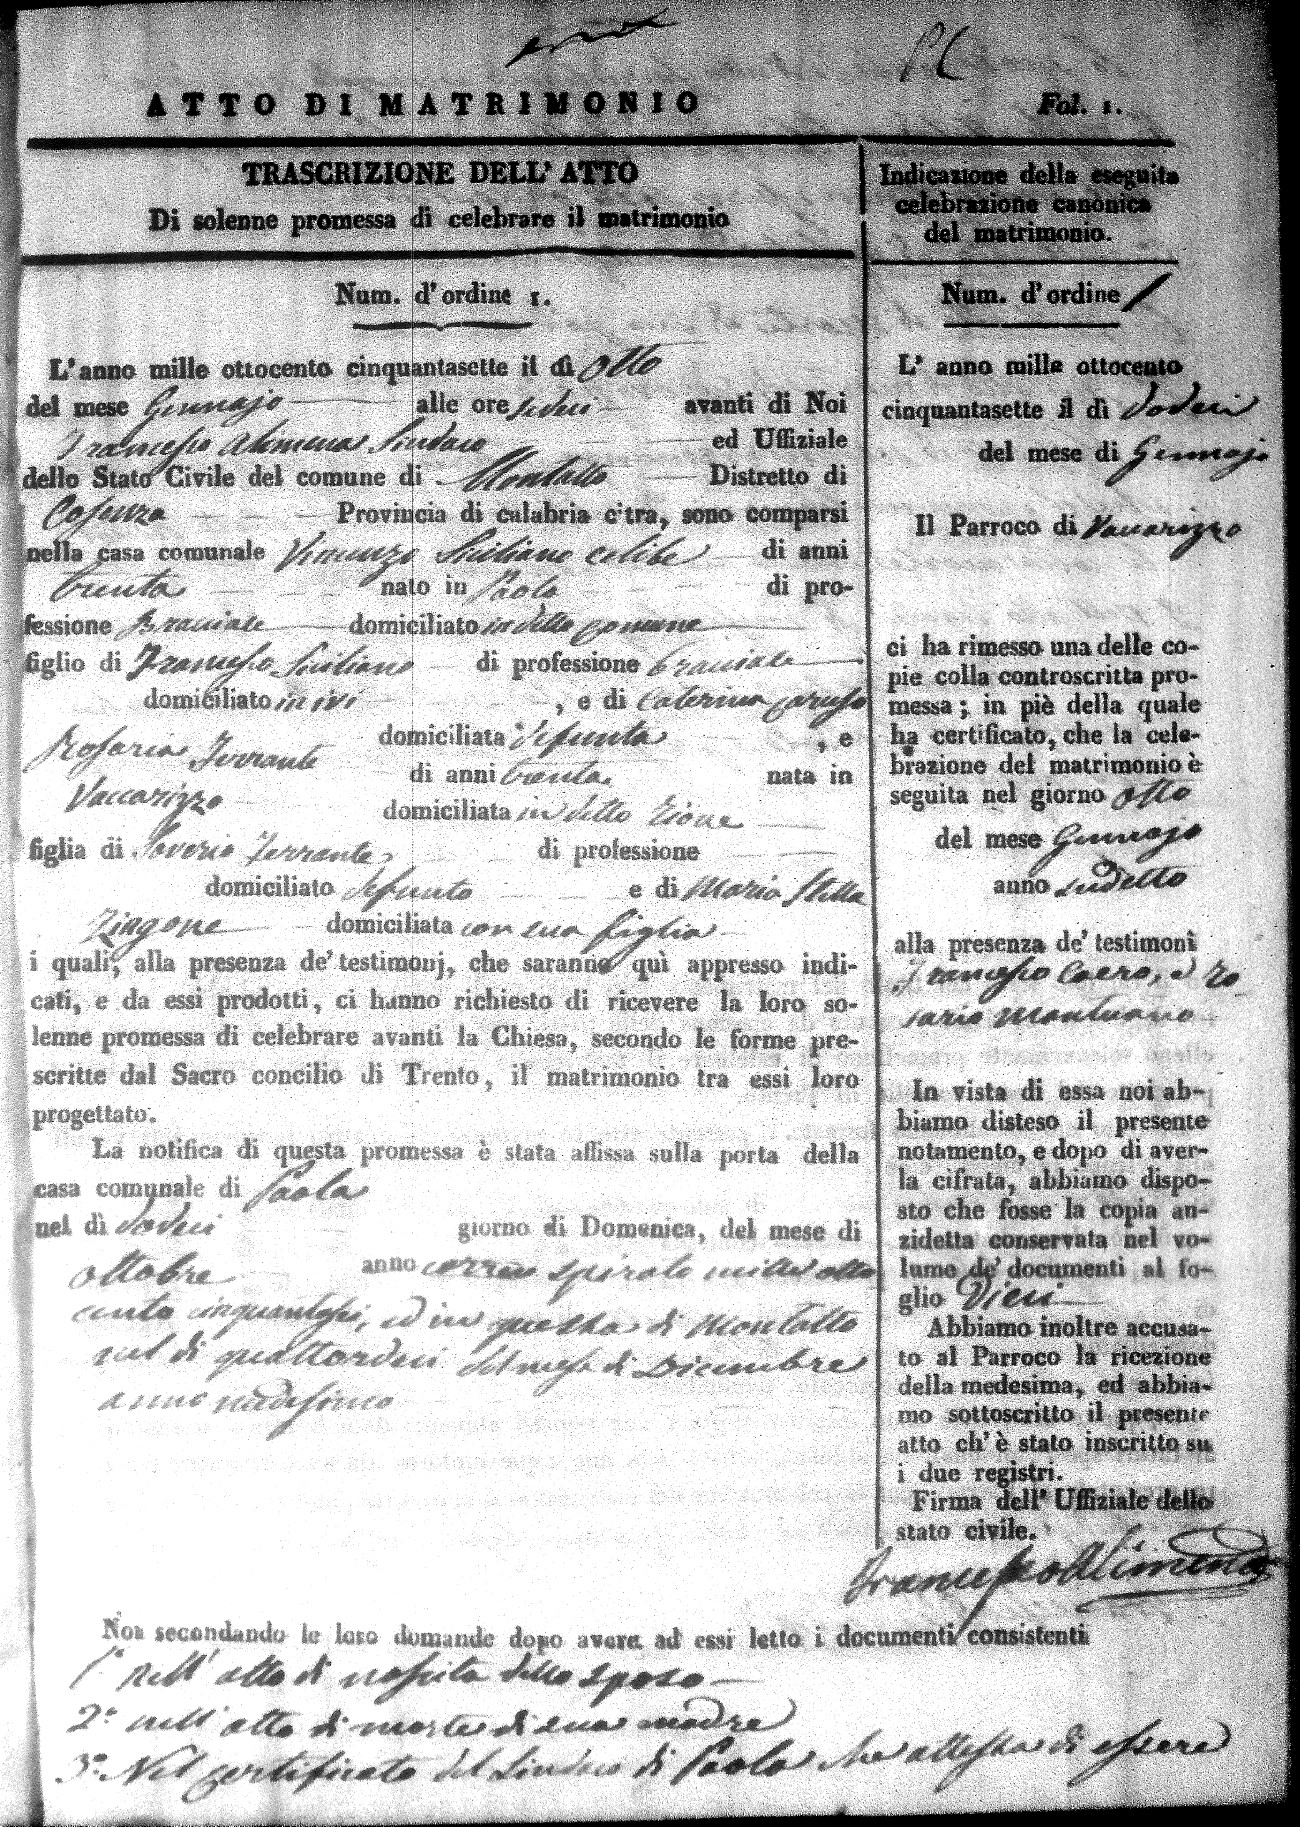 ATTO DI MATRIMONIO
Fol. 1.
TRASCRIZIONE DELL' ATTO
Di solenne promessa di celebrare il matrimonio
Num. d' ordine 1.
L' anno mille ottocento cinquantasette il dì otto
del mese Gennajo alle ore sedici avanti di Noi
Francesco Alimena Sindaco ed Uffiziale
dello Stato Civile del comune di Montalto Distretto di
Cosenza Provincia di calabria citra, sono comparsi
nella casa comunale Vincenzo Siciliano celibe di anni
trenta nato in Paola di pro-
fessione Bracciale domiciliato in detto comune
figlio di Francesco Siciliano di professione bracciale
domiciliato in ivi , e di Caterina Caruso
domiciliata defunta , e
Rosaria Ferrante di anni trenta nata in
Vaccarizzo domiciliata in detto Rione
figlia di Saverio Ferrante di professione
domiciliato defunto e di Maria Stella
Zingone domiciliata con sua figlia
i quali, alla presenza de' testimonj, che saranno quì appresso indi-
cati, e da essi prodotti, ci hanno richiesto di ricevere la loro so-
lenne promessa di celebrare avanti la Chiesa, secondo le forme pre-
scritte dal Sacro concilio di Trento, il matrimonio tra essi loro
progettato.
La notifica di questa promessa è stata affissa sulla porta della
casa comunale di Paola
nel dì dodeci giorno di Domenica, del mese di
ottobre anno spirato mille otto
cento cinquantasei, ed in questa di Montalto
nel di quattordeci del mese di Dicembre
anno medesimo
Indicazione della eseguita
celebrazione canonica
del matrimonio.
Num. d' ordine 1
L' anno mille ottocento
cinquantasette il dì dodeci
del mese di Gennajo
Il Parroco di Vaccarizzo
ci ha rimesso una delle co-
pie colla controscritta pro-
messa; in piè della quale
ha certificato, che la cele-
brazione del matrimonio è
seguita nel giorno otto
del mese Gennajo
anno sudetto
alla presenza de' testimonì
Francesco Caero, e Ro
sario Mantuano
In vista di essa noi ab-
biamo disteso il presente
notamento, e dopo di aver-
la cifrata, abbiamo dispo-
sto che fosse la copia an-
zidetta conservata nel vo-
lume de' documenti al fo-
glio Dieci
Abbiamo inoltre accusa-
to al Parroco la ricezione
della medesima, ed abbia-
mo sottoscritto il presente
atto ch' è stato inscritto su
i due registri.
Firma dell' Uffiziale dello
stato civile.
Francesco Alimena
Noi secondando le loro domande dopo avere ad essi letto i documenti consistenti
1.° Nell' atto di nascita dello sposo
2.° nell' atto di morte di sua madre
3.° Nel certificato del Sindaco di Paola che attesta di essere